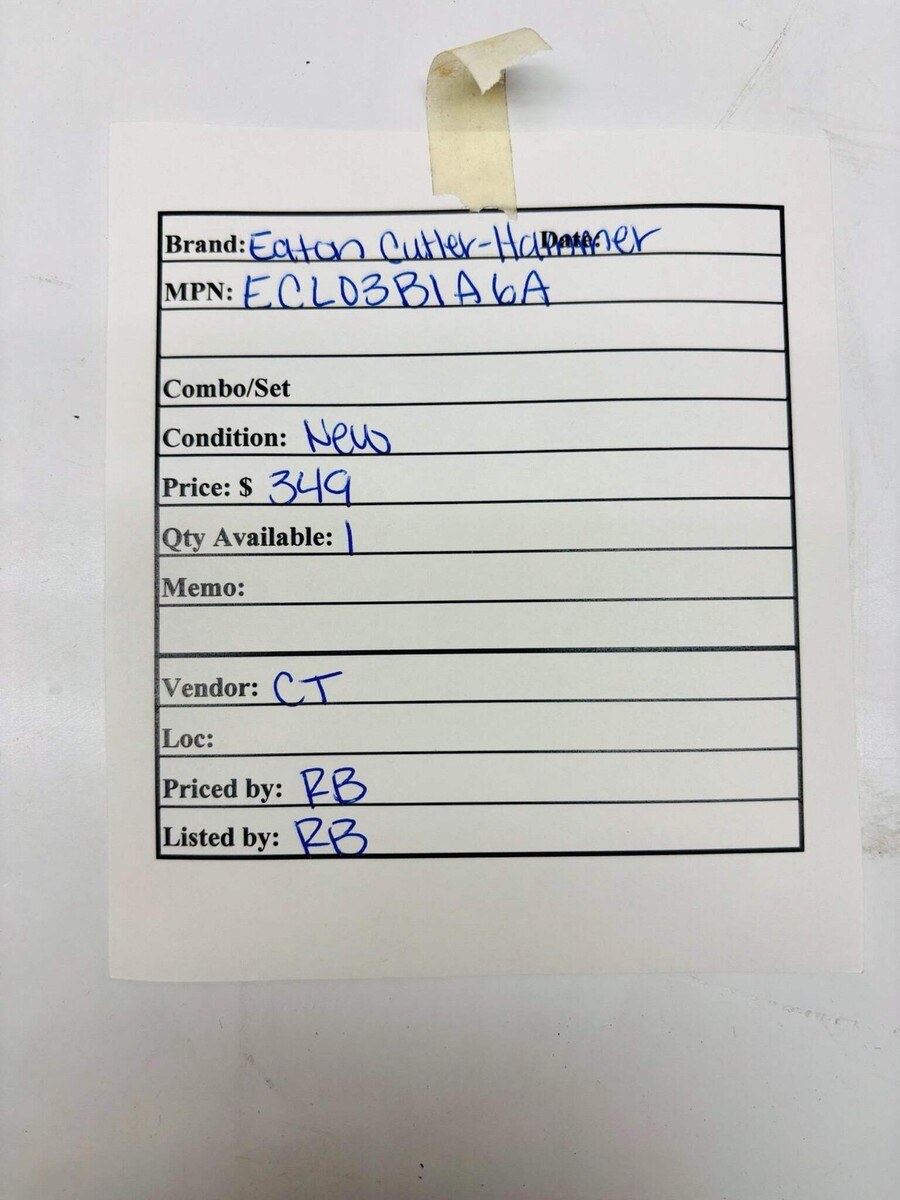 Brand: Eaton Cutler-Hammer Date:
MPN: ECL03B1A6A
Combo/Set
Condition: New
Price: $ 349
Qty Available: 1
Memo:
Vendor: CT
Loc:
Priced by: RB
Listed by: RB